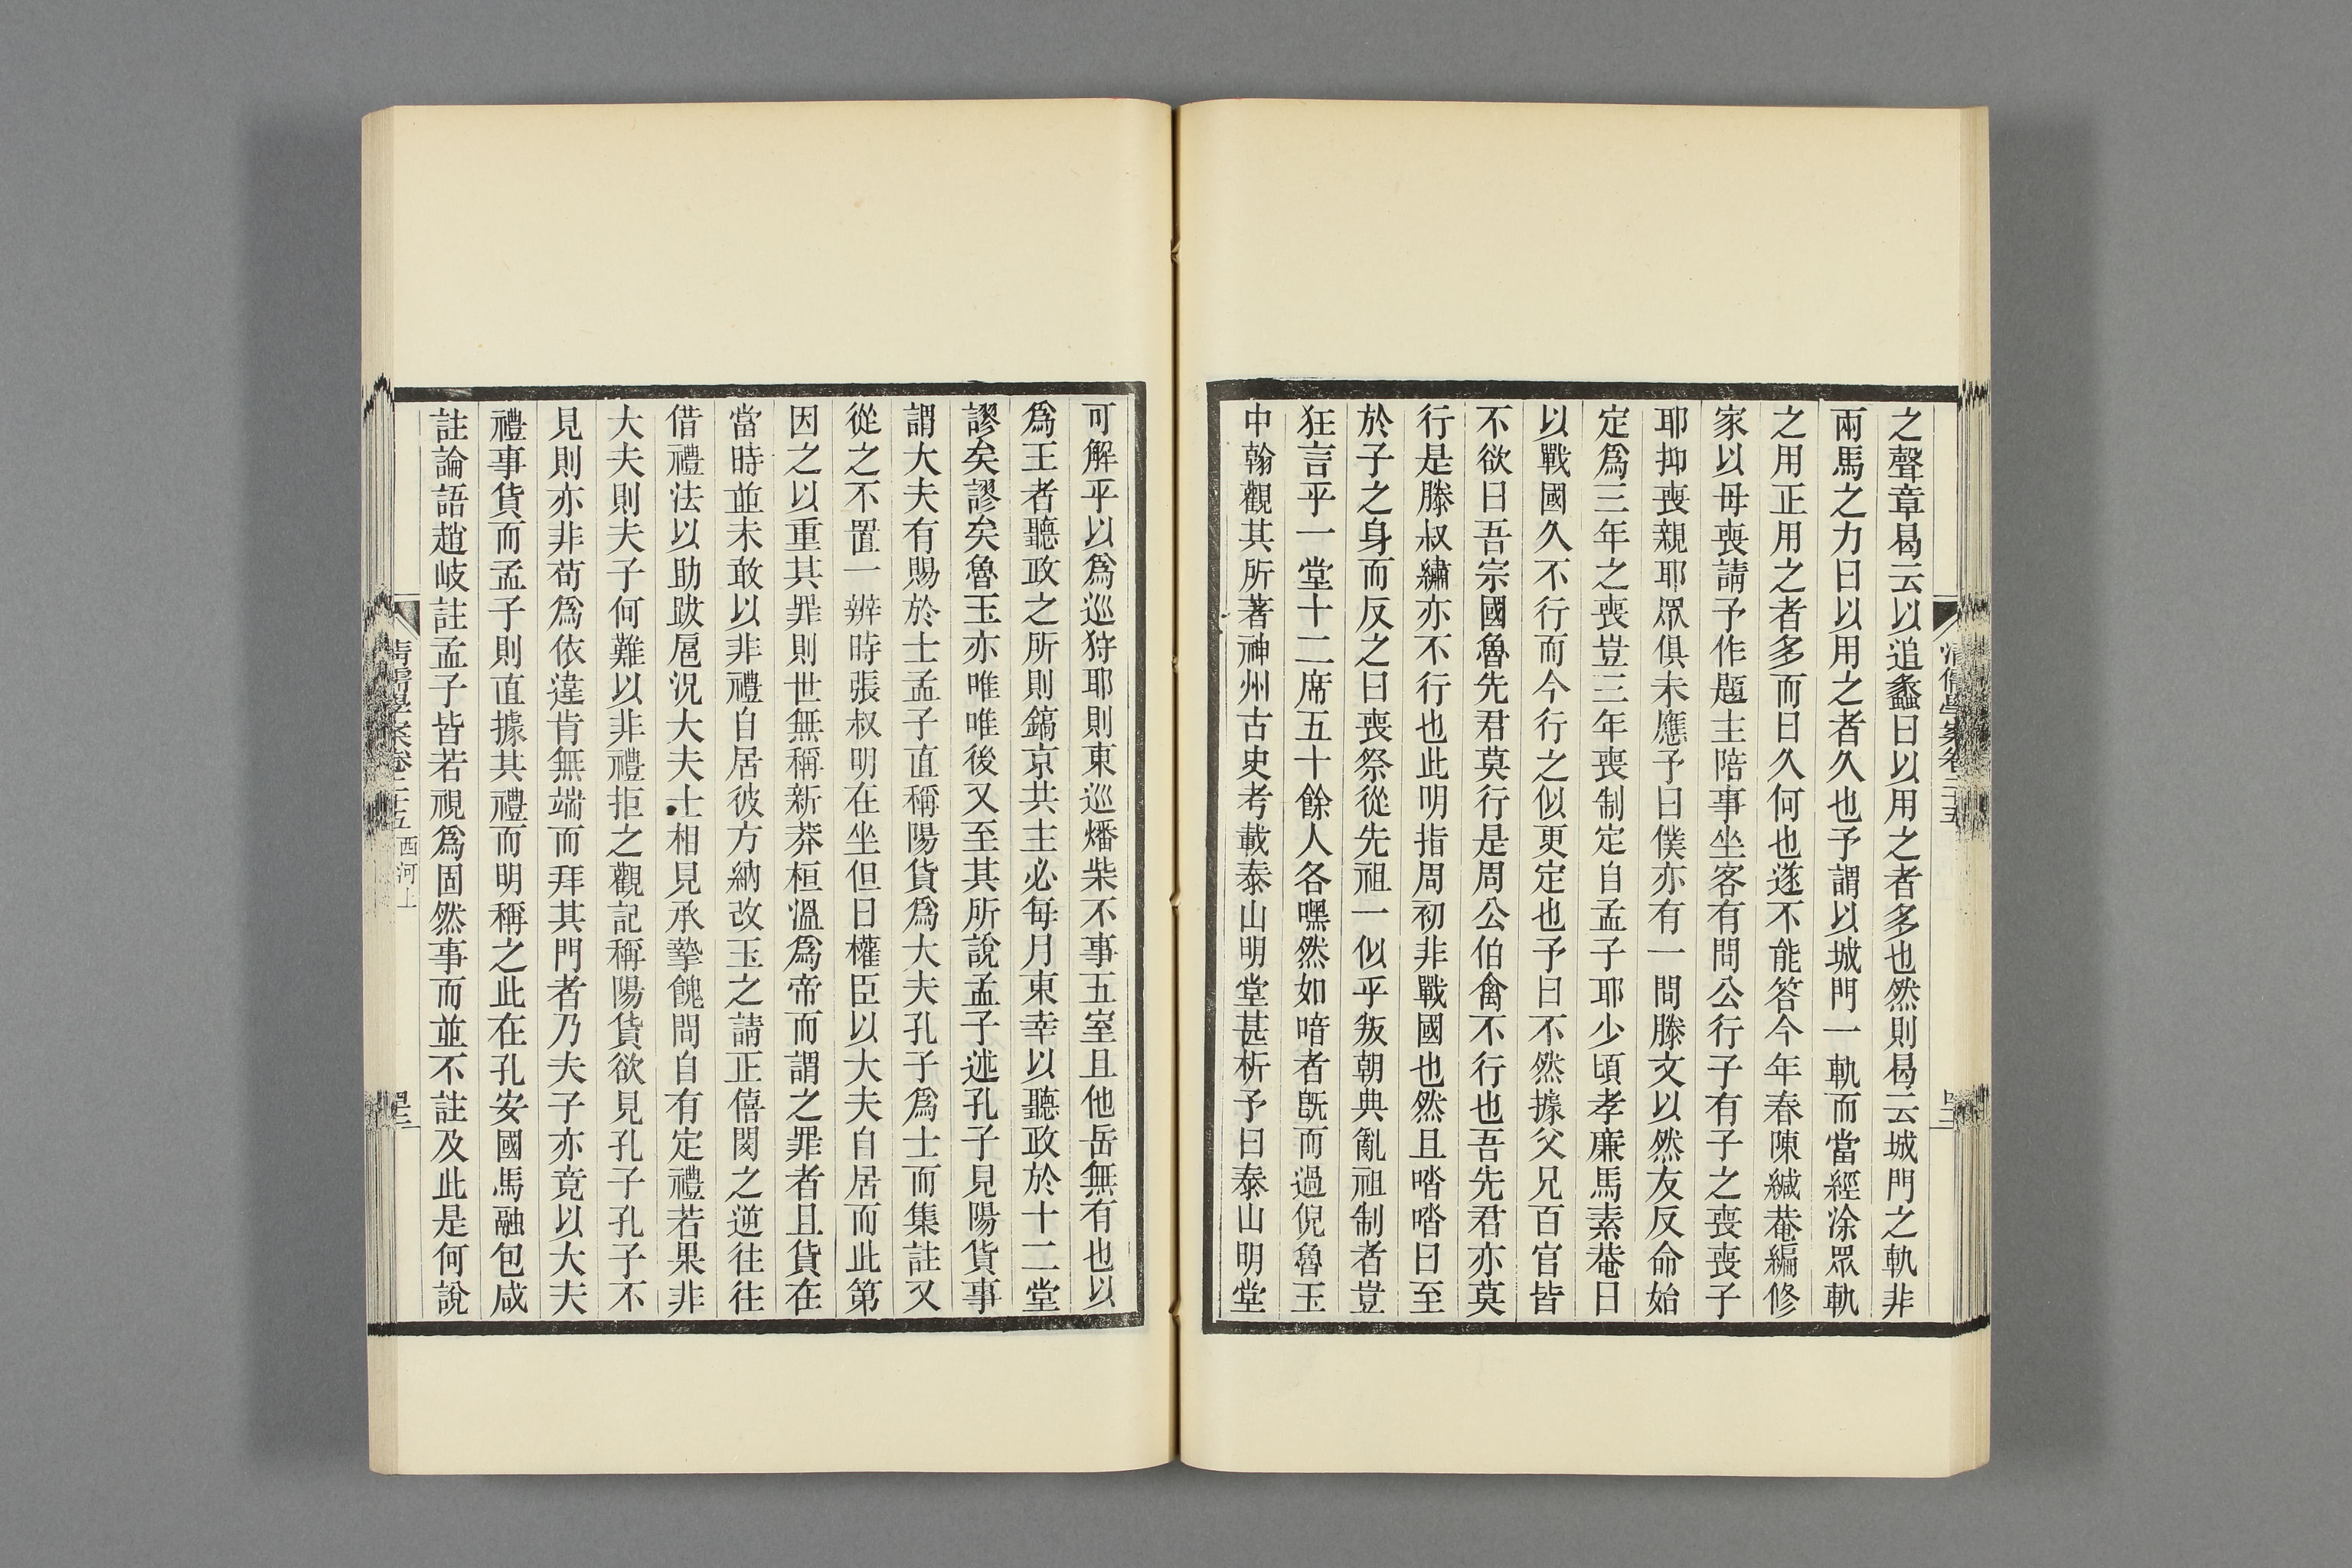 之聲章曷云以追蠡曰以用之者多也然則曷云城門之軌非
兩馬之力曰以用之者久也予謂以城門一軌而當經涂眾軌
之用正用之者多而曰久何也遂不能答今年春陳緘菴編修
家以母喪請予作題主陪事坐客有問公行子有子之喪喪子
耶抑喪親耶眾俱未應予曰僕亦有一問滕文以然友反命始
定為三年之喪豈三年喪制定自孟子耶少頃孝廉馬素菴曰
以戰國久不行而今行之似更定也予曰不然據父兄百官皆
不欲曰吾宗國魯先君莫行是周公伯禽不行也吾先君亦莫
行是滕叔繡亦不行也此明指周初非戰國也然且喈喈曰至
於子之身而反之曰喪祭從先祖一似乎叛朝典亂祖制者豈
狂言乎一堂十二席五十餘人各嘿然如喑者旣而過倪魯玉
中翰觀其所著神州古史考載泰山明堂甚析予曰泰山明堂
可解乎以為巡狩耶則東巡燔柴不事五室且他岳無有也以
為王者聽政之所則鎬京共主必每月東幸以聽政於十二堂
謬矣謬矣魯玉亦唯唯後又至其所說孟子述孔子見陽貨事
謂大夫有賜於士孟子直稱陽貨為大夫孔子為士而集註又
從之不置一辨時張叔明在坐但曰權臣以大夫自居而此第
因之以重其罪則世無稱新莽桓溫為帝而謂之罪者且貨在
當時並未敢以非禮自居彼方納改玉之請正僖閔之逆往往
借禮法以助跋扈況大夫士相見承摯餽問自有定禮若果非
大夫則夫子何難以非禮拒之觀記稱陽貨欲見孔子孔子不
見則亦非苟為依違肯無端而拜其門者乃夫子亦竟以大夫
禮事貨而孟子則直據其禮而明稱之此在孔安國馬融包咸
註論語趙岐註孟子皆若視為固然事而並不註及此是何說
清儒學案卷二十五 西河上